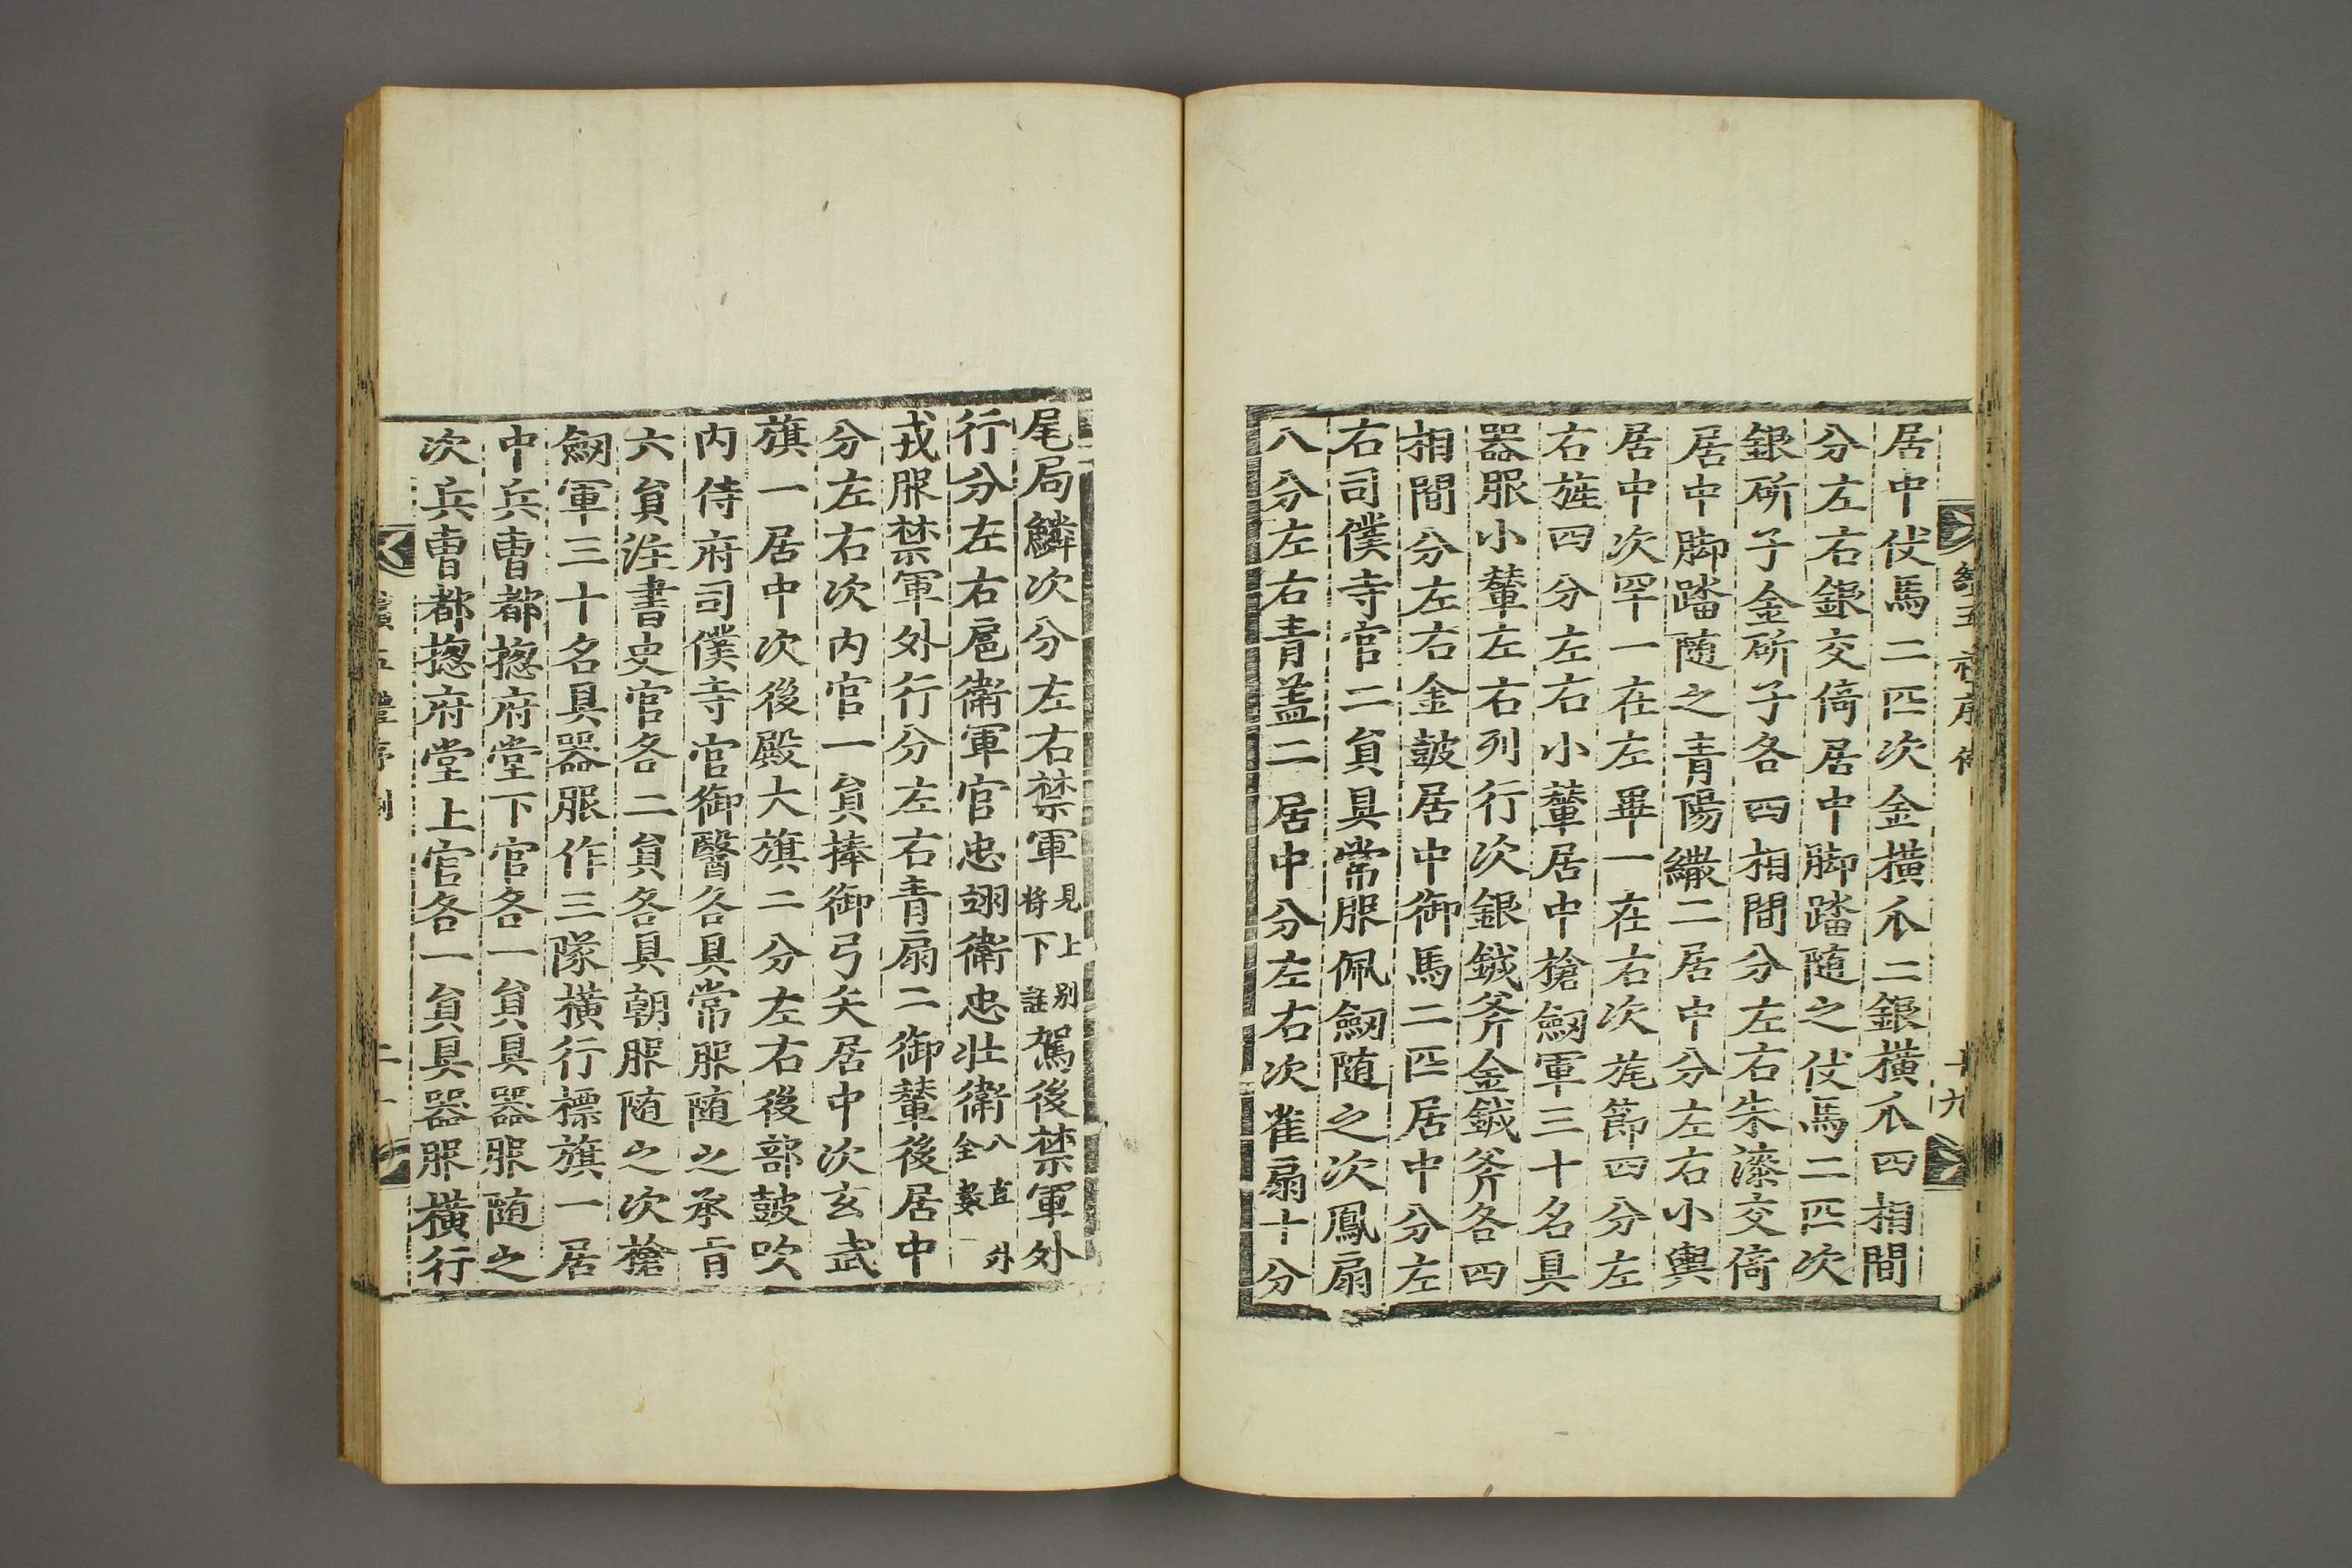 居中仗馬二匹次金橫瓜二銀橫瓜四相間
分左右銀交倚居中脚踏随之仗馬二匹次
銀斫子金斫子各四相間分左右朱漆交倚
居中脚踏随之青陽繖二居中分左右小輿
居中次罕一在左畢一在右次旄節四分左
右旌四分左右小輦居中槍劒軍三十名具
器服小輦左右列行次銀鉞斧金鉞斧各四
相間分左右金鼓居中御馬二匹居中分左
右司僕寺官二員具常服佩劒随之次鳳扇
八分左右青盖二居中分左右次雀扇十分
尾局鱗次分左右禁軍見上別將下註駕後禁軍外
行分左右扈衛軍官忠翊衛忠壯衛八直外全數
戎服禁軍外行分左右青扇二御輦後居中
分左右次内官一員捧御弓矢居中次玄武
旗一居中次後殿大旗二分左右後部鼓吹
内侍府司僕寺官御醫各具常服随之承旨
六員注書史官各二員各具朝服随之次槍
劒軍三十名具器服作三隊橫行標旗一居
中兵曹都摠府堂下官各一員具器服随之
次兵曹都摠府堂上官各一員具器服橫行